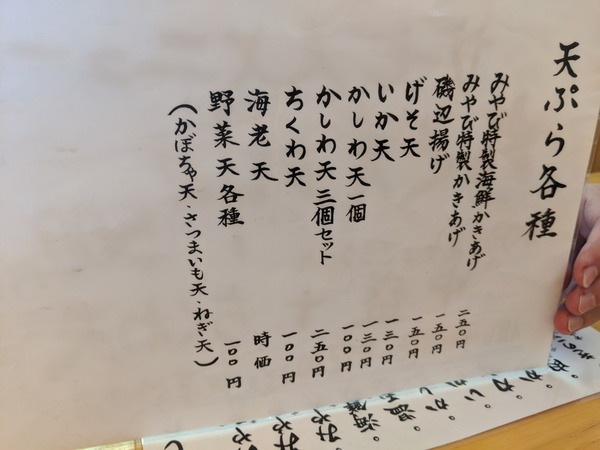 天ぷら各種
みやび特製海鮮かきあげ 二五〇円
みやび特製かきあげ 一五〇円
磯辺揚げ 一五〇円
げそ天 一三〇円
いか天 一三〇円
かしわ天一個 一〇〇円
かしわ天三個セット 二五〇円
ちくわ天 一〇〇円
海老天 時価
野菜天各種 一〇〇円
(かぼちゃ天・さつまいも天・ねぎ天)